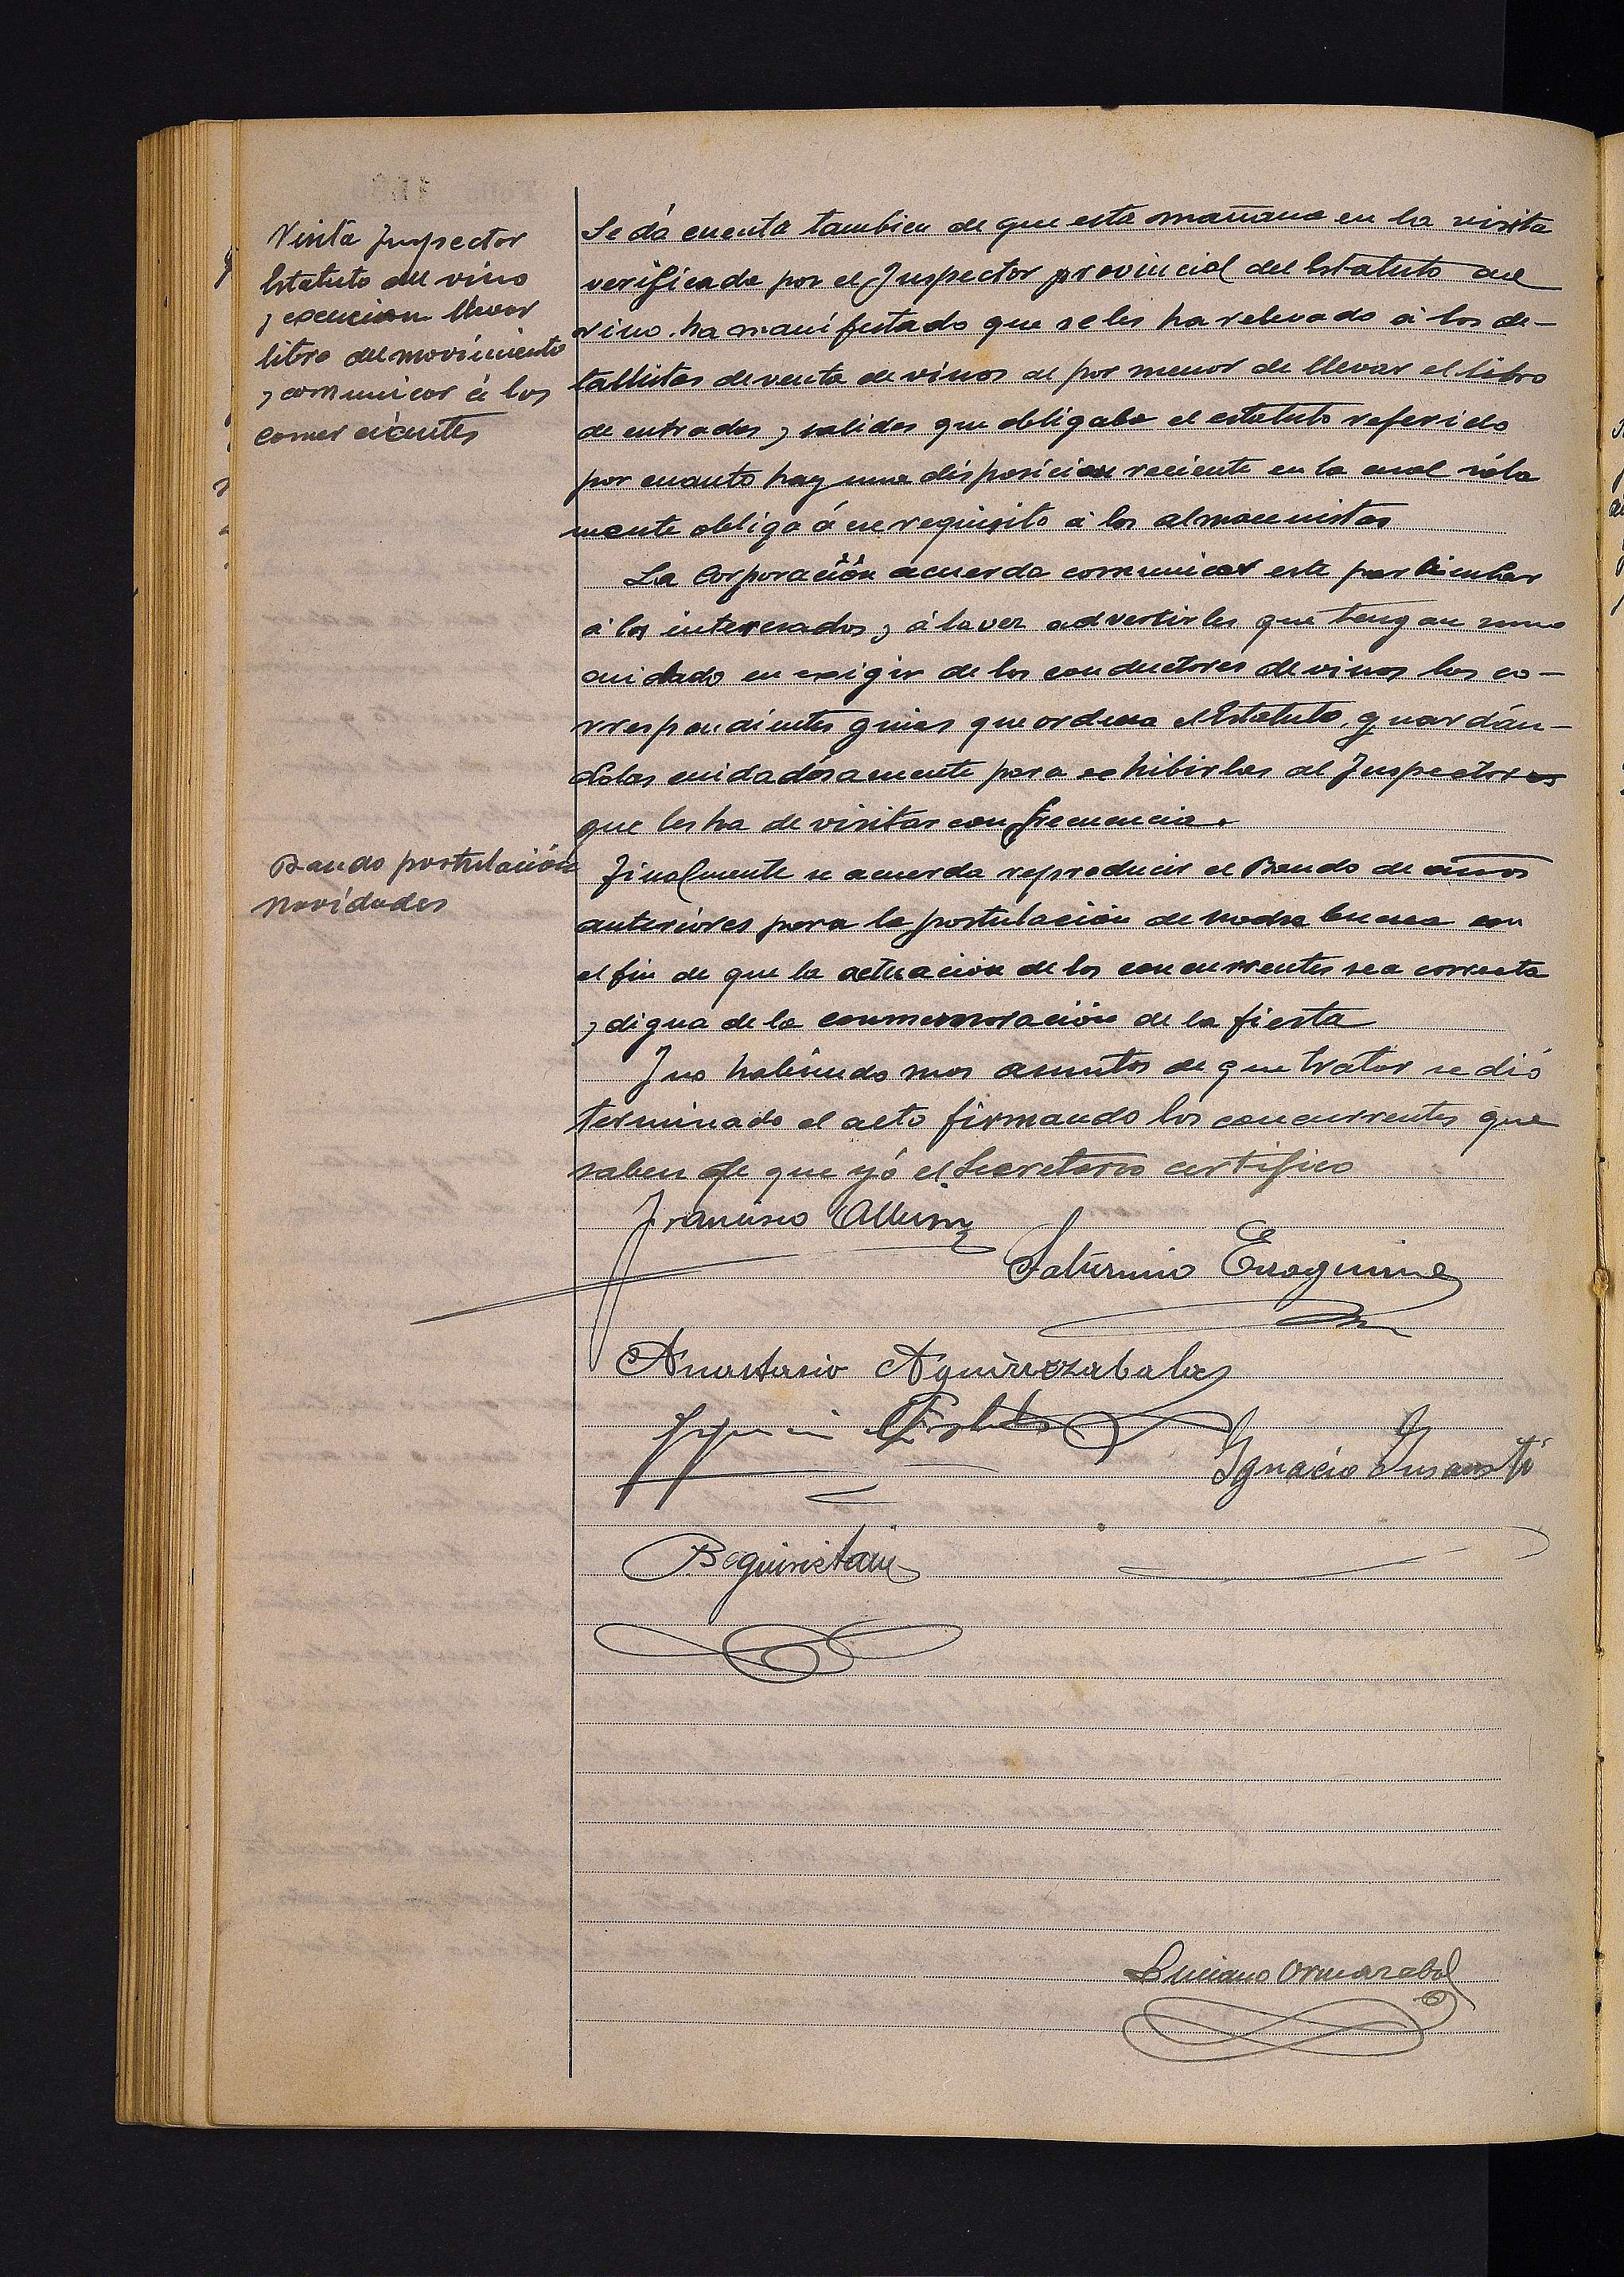 Visita Inspector
Estatuto del vino
y exencion llevar
libro del movimiento
y comunicar á los
comerciantes
Se dá cuenta tambien de que esta mañana en la visita
verificada por el Inspector provincial del Estatuto del
vino ha manifestado que se les ha relevado á los de-
tallistas de venta de vinos al por menor de llevar el libro
de entradas y salidas que obligaba el estatuto referido
por cuanto hay una disposicion reciente en la cual sola
mente obliga á ese requisito á los almacenistas
La Corporación acuerda comunicar este particular
á los interesados y á la vez advertirles que tengan sumo
cuidado en exigir de los conductores de vinos los co-
rrespondientes guias que ordena el Estatuto, guardán-
dolas cuidadosamente para exhibirlas al Inspector
que les ha de visitar con frecuencia.
Bando postulación
Navidades
Finalmente se acuerda reproducir el Bando de años
anteriores para la postulación de noche buena con
el fin de que la actuacion de los concurrentes sea correcta
y digna de la conmemoración de la fiesta
Y no habiendo mas asuntos de que tratar se dió
terminado el acto firmando los concurrentes que
saben de que yó el Secretario certifico
Francisco
Saturnino Eizaguirre
Anastasio Aguirrezabala
Ignacio Insausti
Beguiristain
Luciano Ormazabal